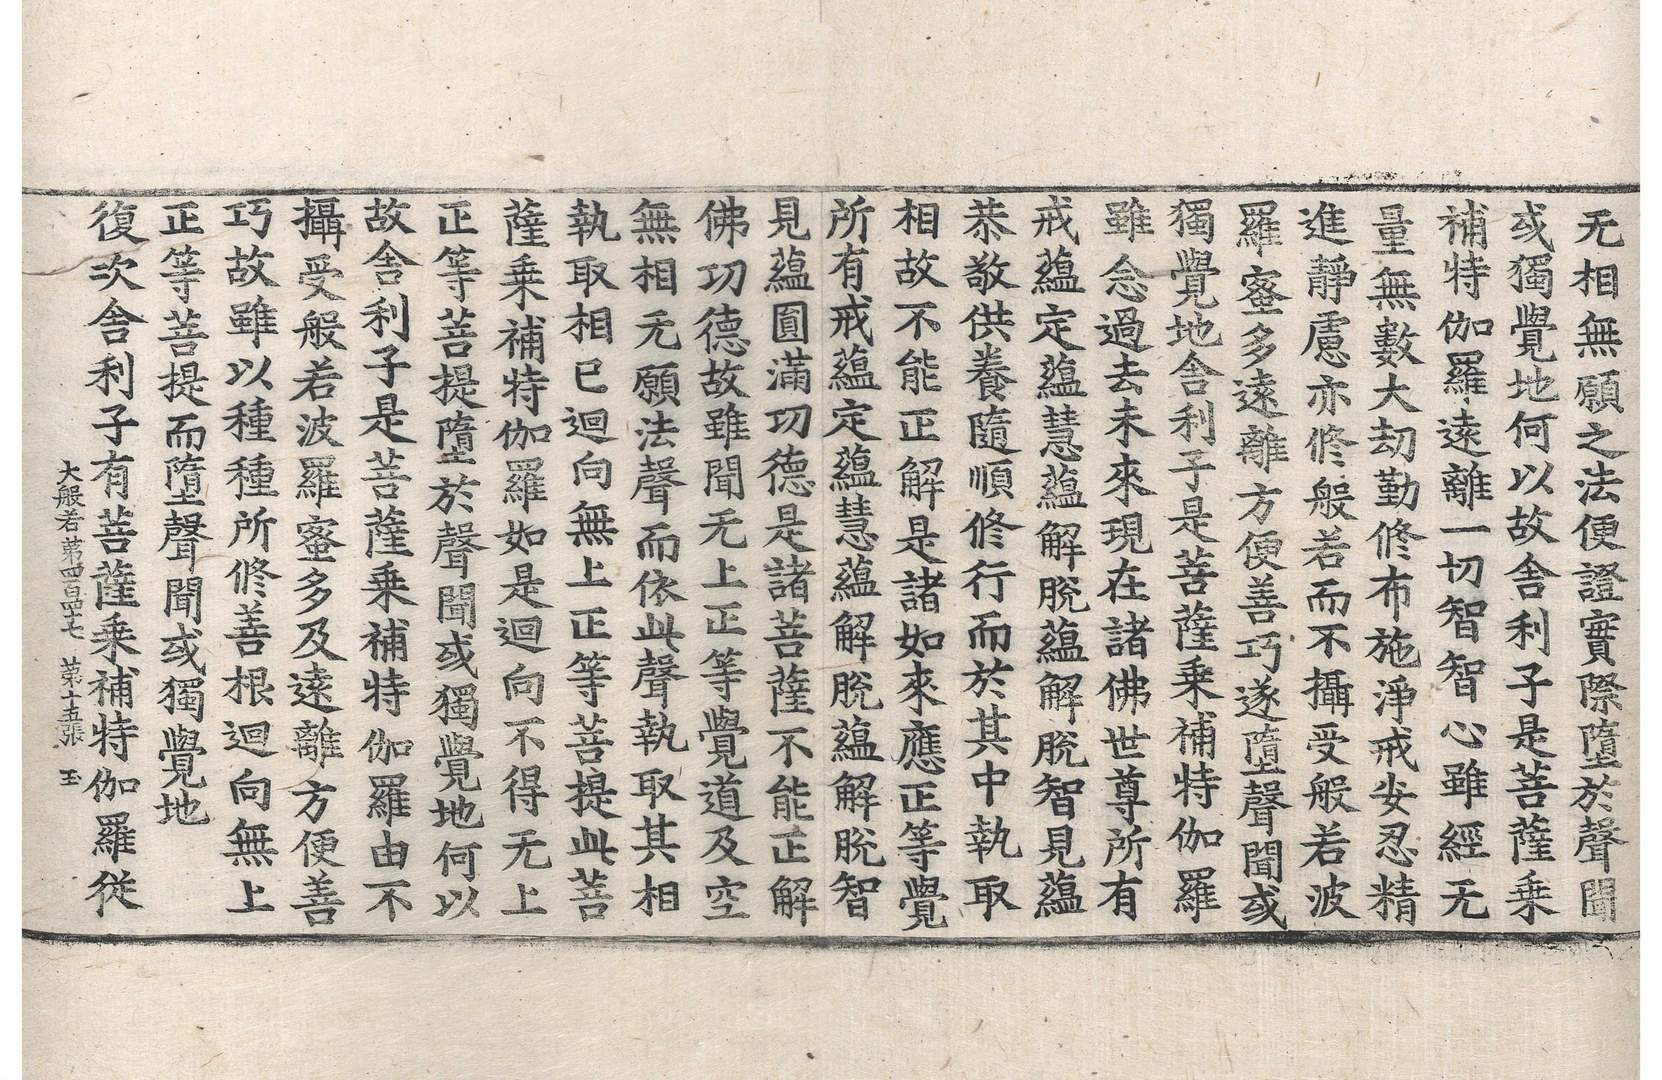 无相無願之法便證實際墮於聲聞
或獨覺地何以故舍利子是菩薩乘
補特伽羅遠離一切智智心雖經无
量無數大劫勤修布施淨戒安忍精
進靜慮亦修般若而不攝受般若波
羅蜜多遠離方便善巧遂墮聲聞或
獨覺地舍利子是菩薩乘補特伽羅
雖念過去未來現在諸佛世尊所有
戒蘊定蘊慧蘊解脫蘊解脫智見蘊
恭敬供養隨順修行而於其中執取
相故不能正解是諸如來應正等覺
所有戒蘊定蘊慧蘊解脫蘊解脫智
見蘊圓滿功德是諸菩薩不能正解
佛功德故雖聞无上正等覺道及空
無相无願法聲而依此聲執取其相
執取相已迴向無上正等菩提此菩
薩乘補特伽羅如是迴向不得无上
正等菩提墮於聲聞或獨覺地何以
故舍利子是菩薩乘補特伽羅由不
攝受般若波羅蜜多及遠離方便善
巧故雖以種種所修善根迴向無上
正等菩提而墮聲聞或獨覺地
復次舍利子有菩薩乘補特伽羅從
大般若第四百四十七 第十五張 玉